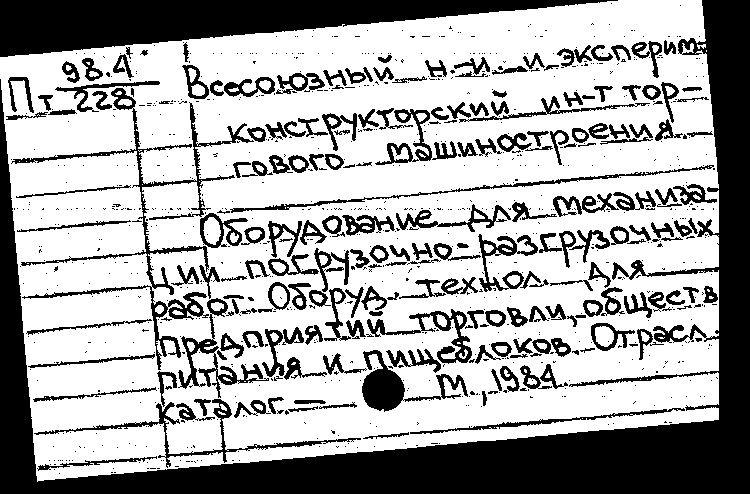 Пт 98.4/228
Всесоюзный н.-и. и эксперим.-
конструкторский ин-т тор-
гового машиностроения.
Оборудование для механиза-
ции погрузочно-разгрузочных
работ. Оборуд. технол. для
предприятий торговли, обществ
питания и пищеблоков. Отрасл.
каталог. — М., 1984